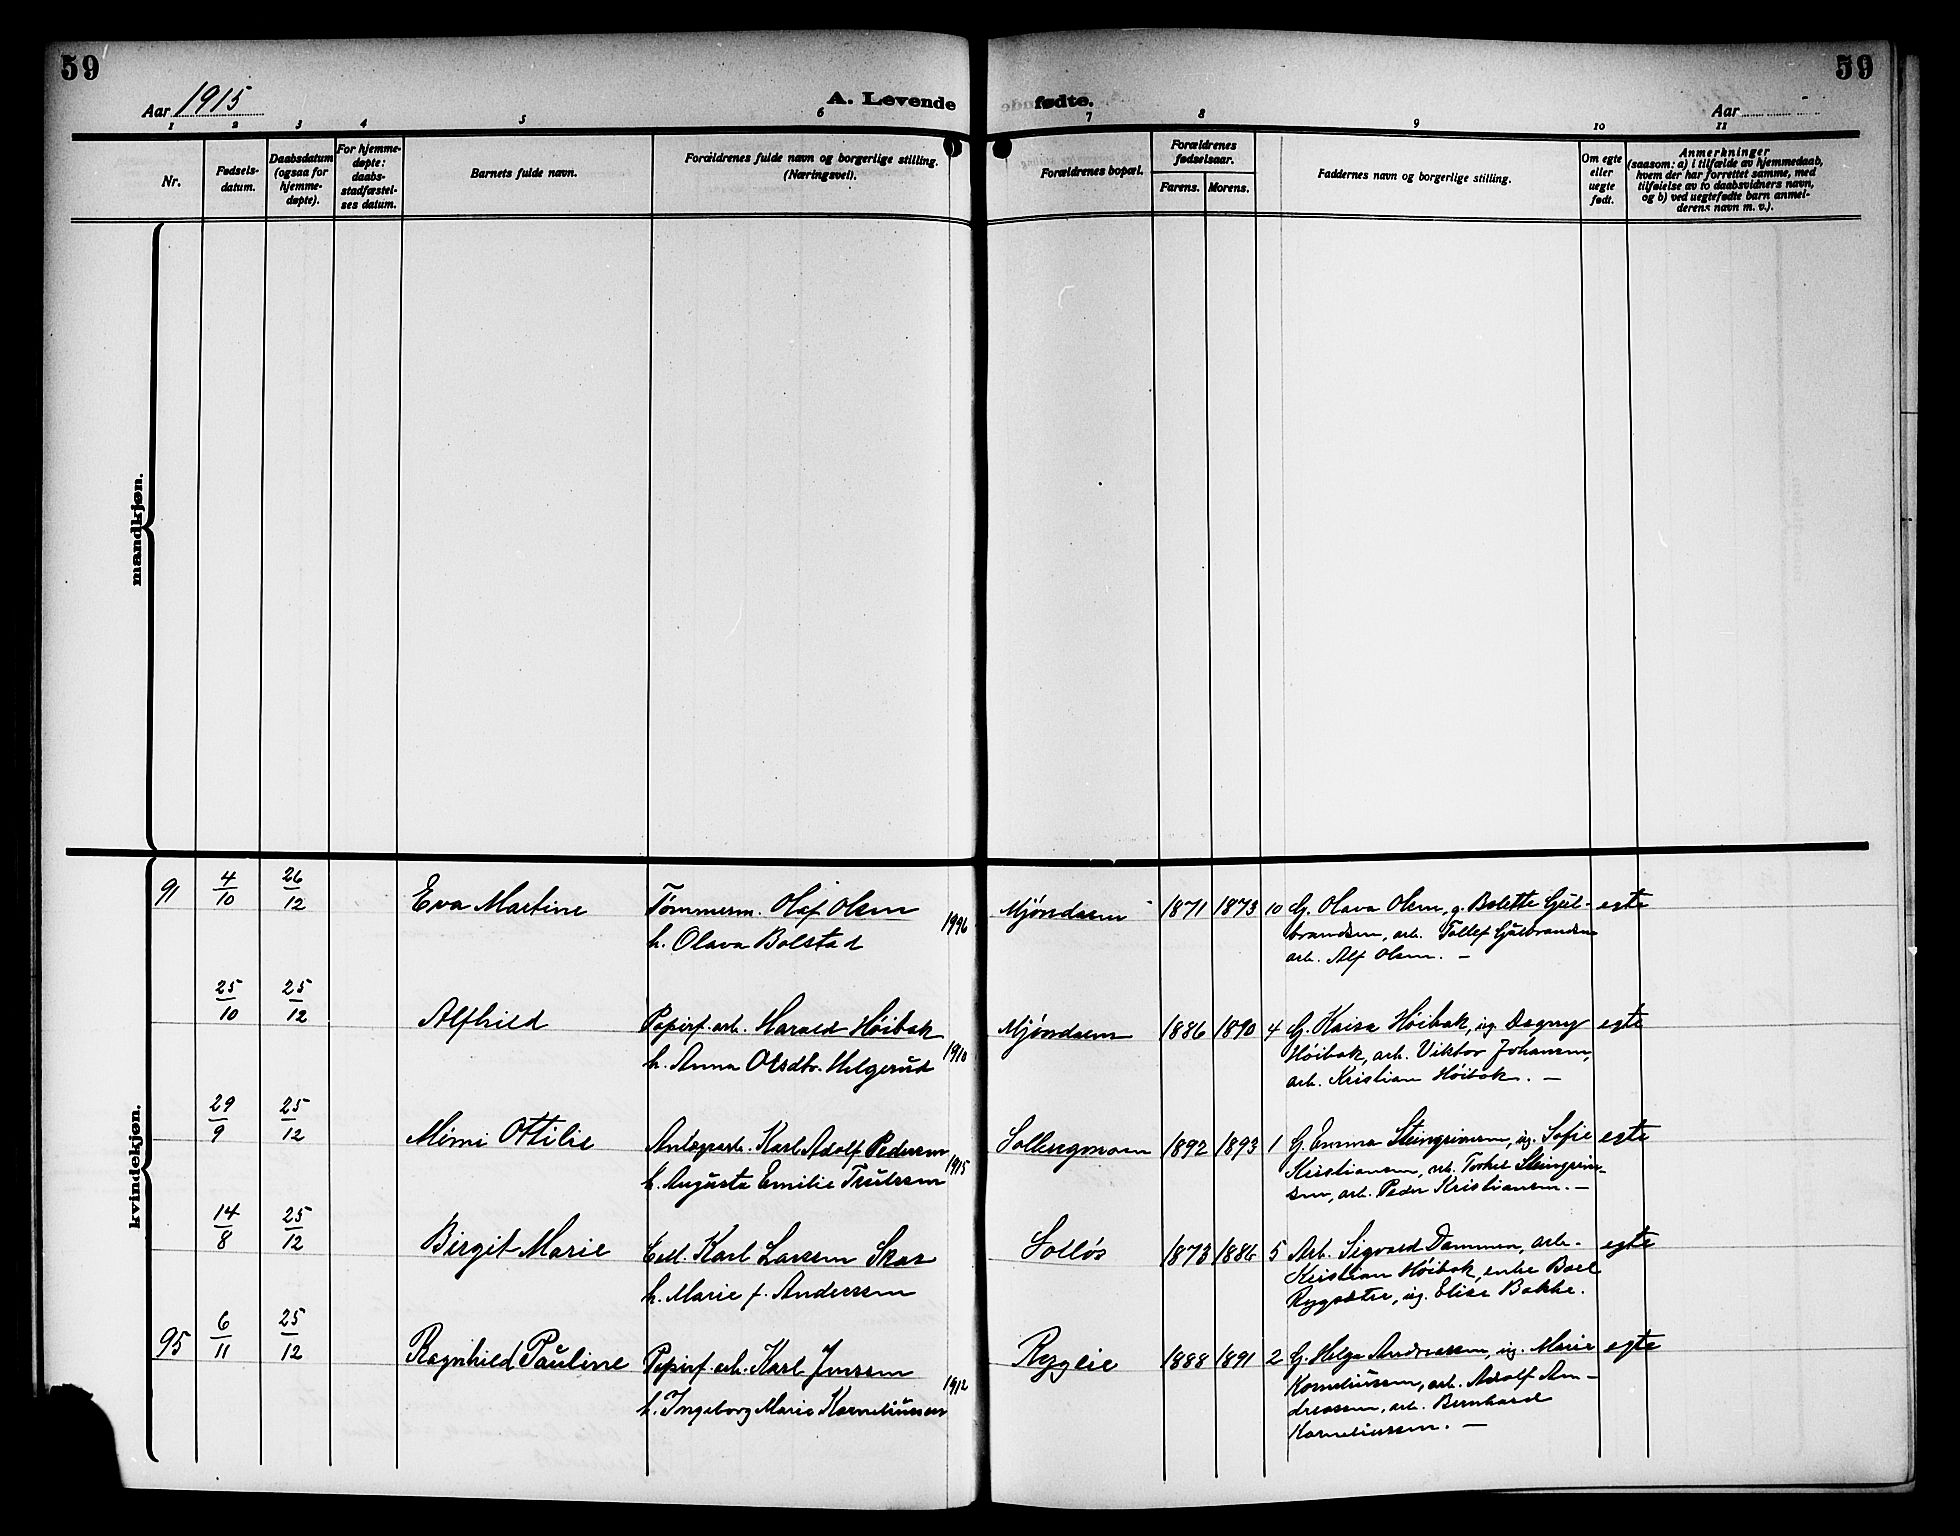 59
59
Aar 1915
A. Levende
fødte.
Aar
1 2 3 4 5 6 7 8 9 10 11
Nr.
Fødsels-
datum.
Daabsdatum
(ogsaa for
hjemme-
døpte).
For hjemme-
døpte:
daabs-
stadfæstel-
ses datum.
Barnets fulde navn.
Forældrenes fulde navn og borgerlige stilling.
(Næringsvei).
Forældrenes bopæl.
Forældrenes
fødselsaar.
Farens. Morens.
Faddernes navn og borgerlige stilling.
Om egte
eller
uegte
født.
Anmerkninger
(saasom: a) i tilfælde av hjemmedaab,
hvem der har forrettet samme, med
tilføielse av to daabsvidners navn,
og b) ved uegtefødte barn anmel-
derens navn m. v.).
mandkjøn.
kvindekjøn.
91 4/10 26/12 Eva Martine Tømmerm. Olaf Olsen Mjøndalen 1871 1873 10 G. Olava Olsen, g. Bolette Gul- egte
h. Olava Bolstad 1896 brandsen, arb. Tollef Gulbrandsen
arb. Alf Olsen. –
25/10 25/12 Alfhild Papirf. arb. Harald Høibak Mjøndalen 1886 1890 4 G. Kaisa Høibak, ug. Dagny egte
h. Anna Olsdtr. Helgerud 1910 Høibak, arb. Viktor Johansen,
arb. Kristian Høibak. –
29/9 25/12 Mimi Ottilie Karl Adolf Pedersen 1892 1893 1 G. Emma Steingrimsen, ug. Sofie egte
h. Augusta Emilie Trulssen 1915 Kristiansen, arb. Torkel Steingrim-
sen, arb. Peder Kristiansen. –
14/8 25/12 Birgit Marie Karl Larsen Skar Solløs 1873 1886 5 Arb. Sigvald Dammen, arb. egte
h. Marie f. Anderssen Kristian Høibak, enke Boel
Rygsætre, ug. Elise Bakke.
95 6/11 25/12 Ragnhild Pauline Papirf. arb. Karl Jenssen Rygeie 1888 1891 2 G. Helga Andreassen, ug. Marie egte
h. Ingeborg Marie Korneliussen 1912 Korneliussen, arb. Adolf An-
dreassen, arb. Bernhard
Korneliussen. –